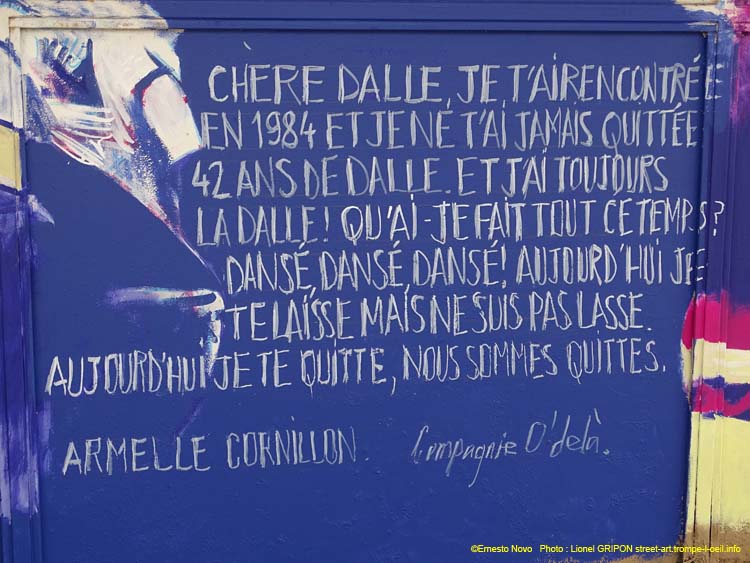 CHÈRE DALLE, JE T'AI RENCONTRÉE
EN 1984 ET JE NE T'AI JAMAIS QUITTÉE
42 ANS DE DALLE. ET J'AI TOUJOURS
LA DALLE! QU'AI-JE FAIT TOUT CE TEMPS?
DANSÉ, DANSÉ, DANSÉ! AUJOURD'HUI JE
TE LAISSE MAIS NE SUIS PAS LASSE.
AUJOURD'HUI JE TE QUITTE, NOUS SOMMES QUITTES.
ARMELLE CORNILLON. Compagnie O'delà.
©Ernesto Novo Photo : Lionel GRIPON street-art.trompe-l-oeil.info